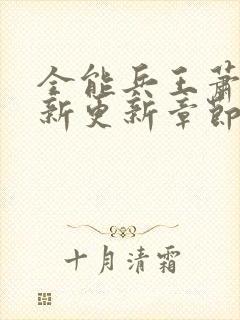 全能兵王萧
新更新章节
十月清霜